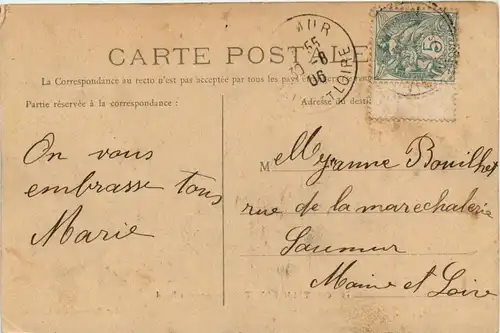 CARTE POSTALE
La Correspondance au recto n'est pas acceptée par tous les pays
Partie réservée à la correspondance :
Adresse du
55
8
06
ET LOIRE
5
On vous
embrasse tous
Marie
M
Jeanne Bouilhet
rue de la marechalerie
Saumur
Maine et Loire